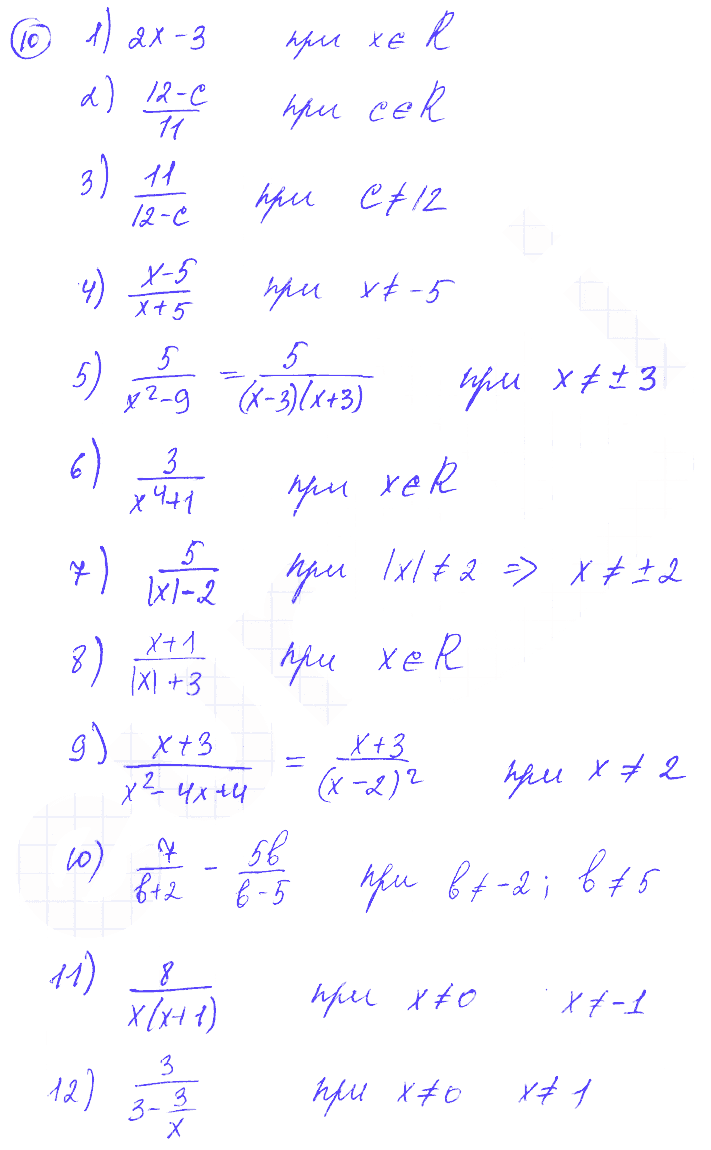 10 1) 2x - 3 при x ∈ R
2) (12-c)/11 при c ∈ R
3) 11/(12-c) при c ≠ 12
4) (x-5)/(x+5) при x ≠ -5
5) 5/(x²-9) = 5/((x-3)(x+3)) при x ≠ ± 3
6) 3/(x⁴+1) при x ∈ R
7) 5/(|x|-2) при |x| ≠ 2 => x ≠ ± 2
8) (x+1)/(|x|+3) при x ∈ R
9) (x+3)/(x²-4x+4) = (x+3)/(x-2)² при x ≠ 2
10) 7/(b+2) - 5b/(b-5) при b ≠ -2; b ≠ 5
11) 8/(x(x+1)) при x ≠ 0 x ≠ -1
12) 3/(3 - 3/x) при x ≠ 0 x ≠ 1